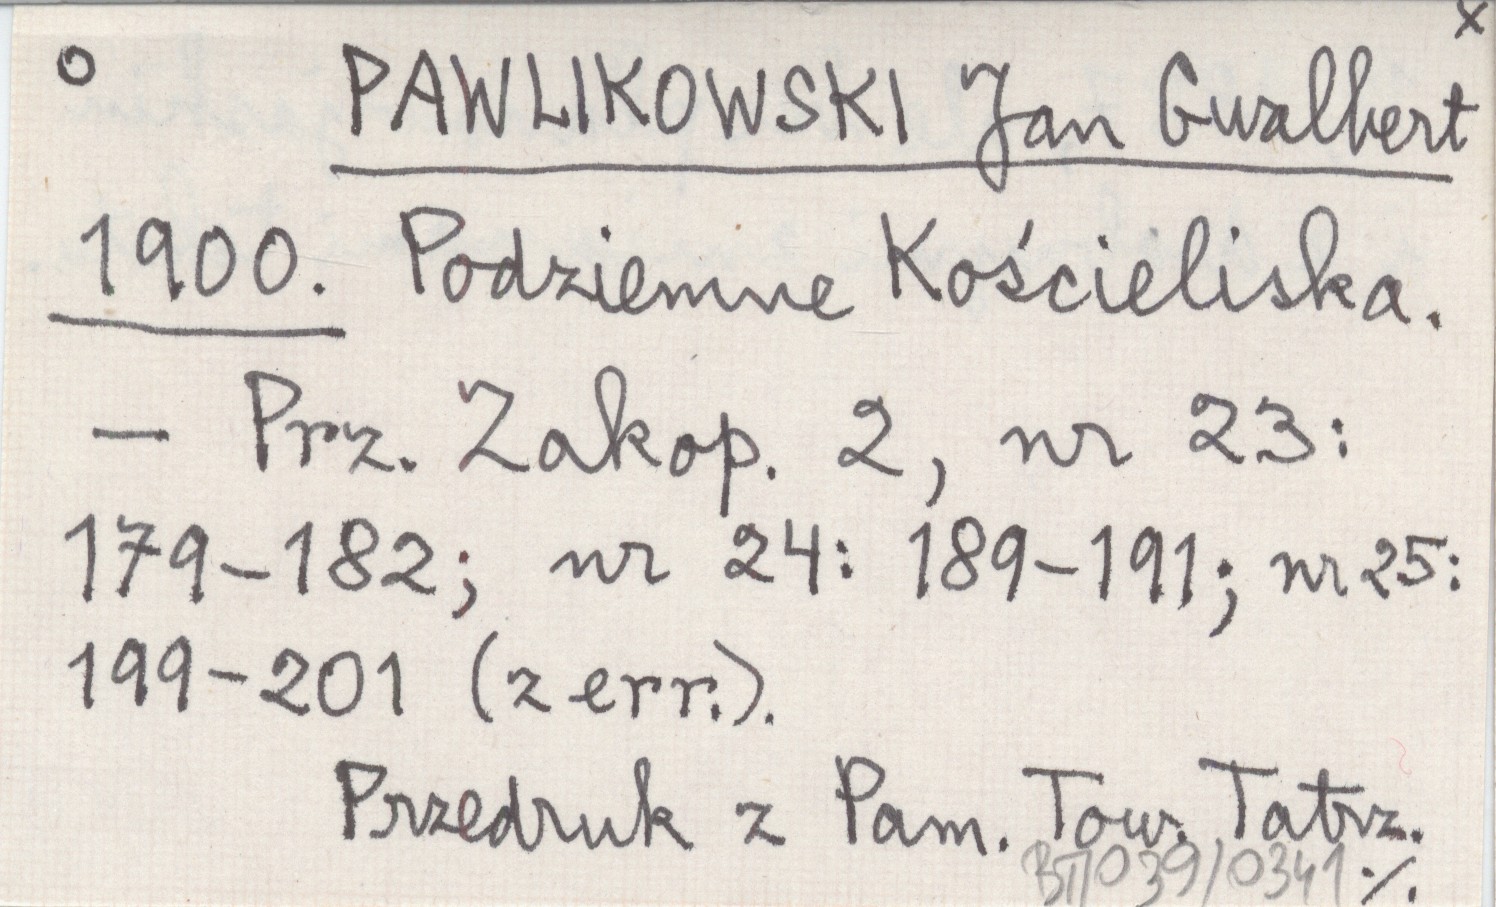 o x
PAWLIKOWSKI Jan Gwalbert
1900. Podziemne Kościeliska.
— Prz. Zakop. 2, nr 23:
179–182; nr 24: 189–191; nr 25:
199–201 (z err.).
Przedruk z Pam. Tow. Tatrz.
BT/039/0341 ·/.